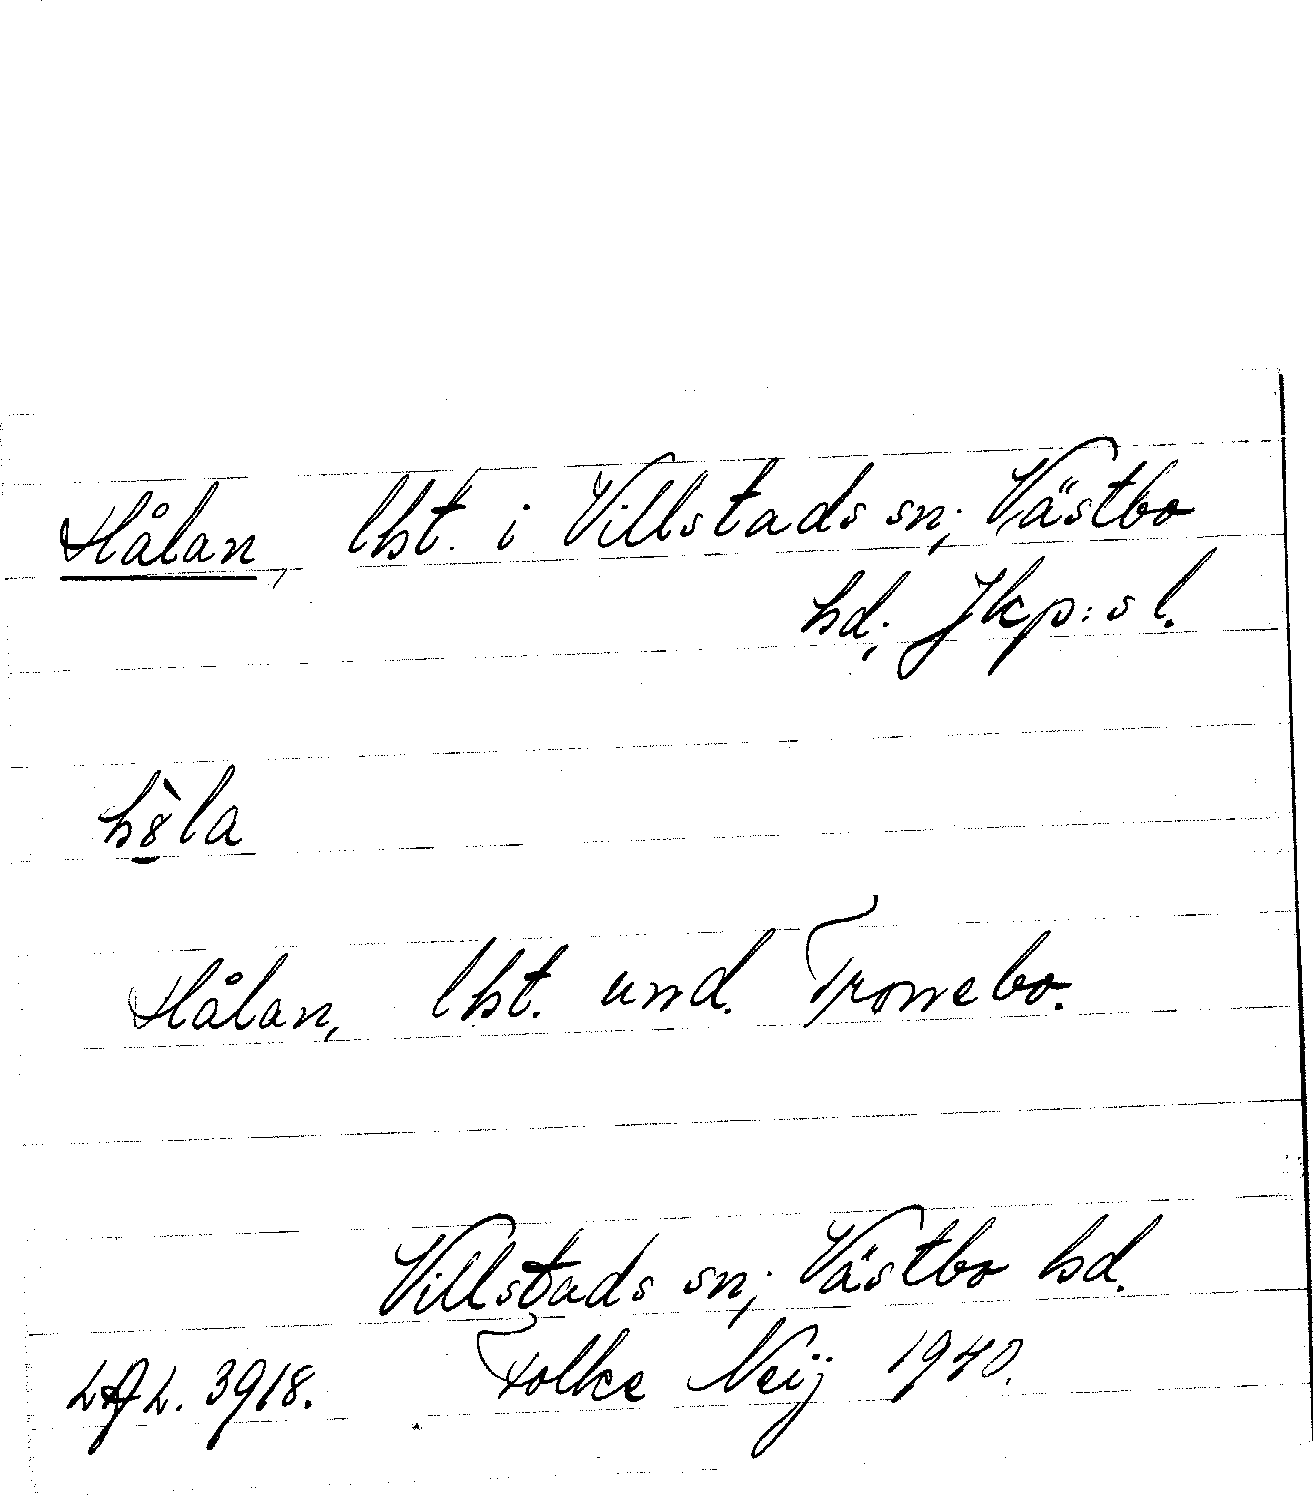 Hålan, lht. i Villstads sn; Västbo
hd; Jkp:s l.
Hålan, lht. und. Tronebo.
Villstads sn; Västbo hd.
LAL. 3918. Folke Neij 1940.